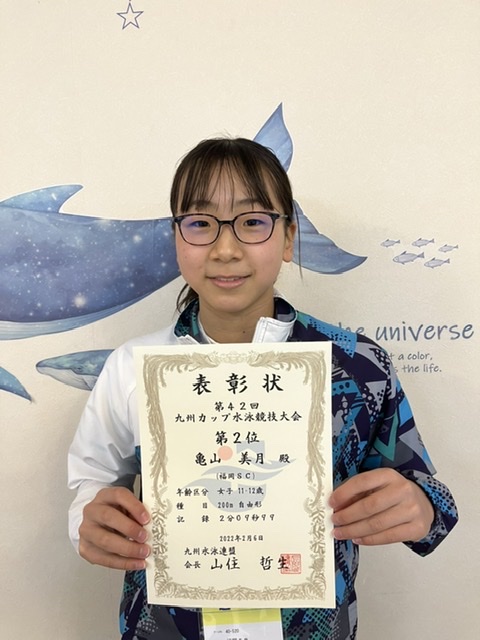 the universe
t a color,
s the life.
表彰状
第42回
九州カップ水泳競技大会
第2位
亀山 美月 殿
(福岡SC)
年齢区分 女子 11-12歳
種目 200m 自由形
記録 2分09秒99
2022年2月6日
九州水泳連盟
会長 山住 哲生